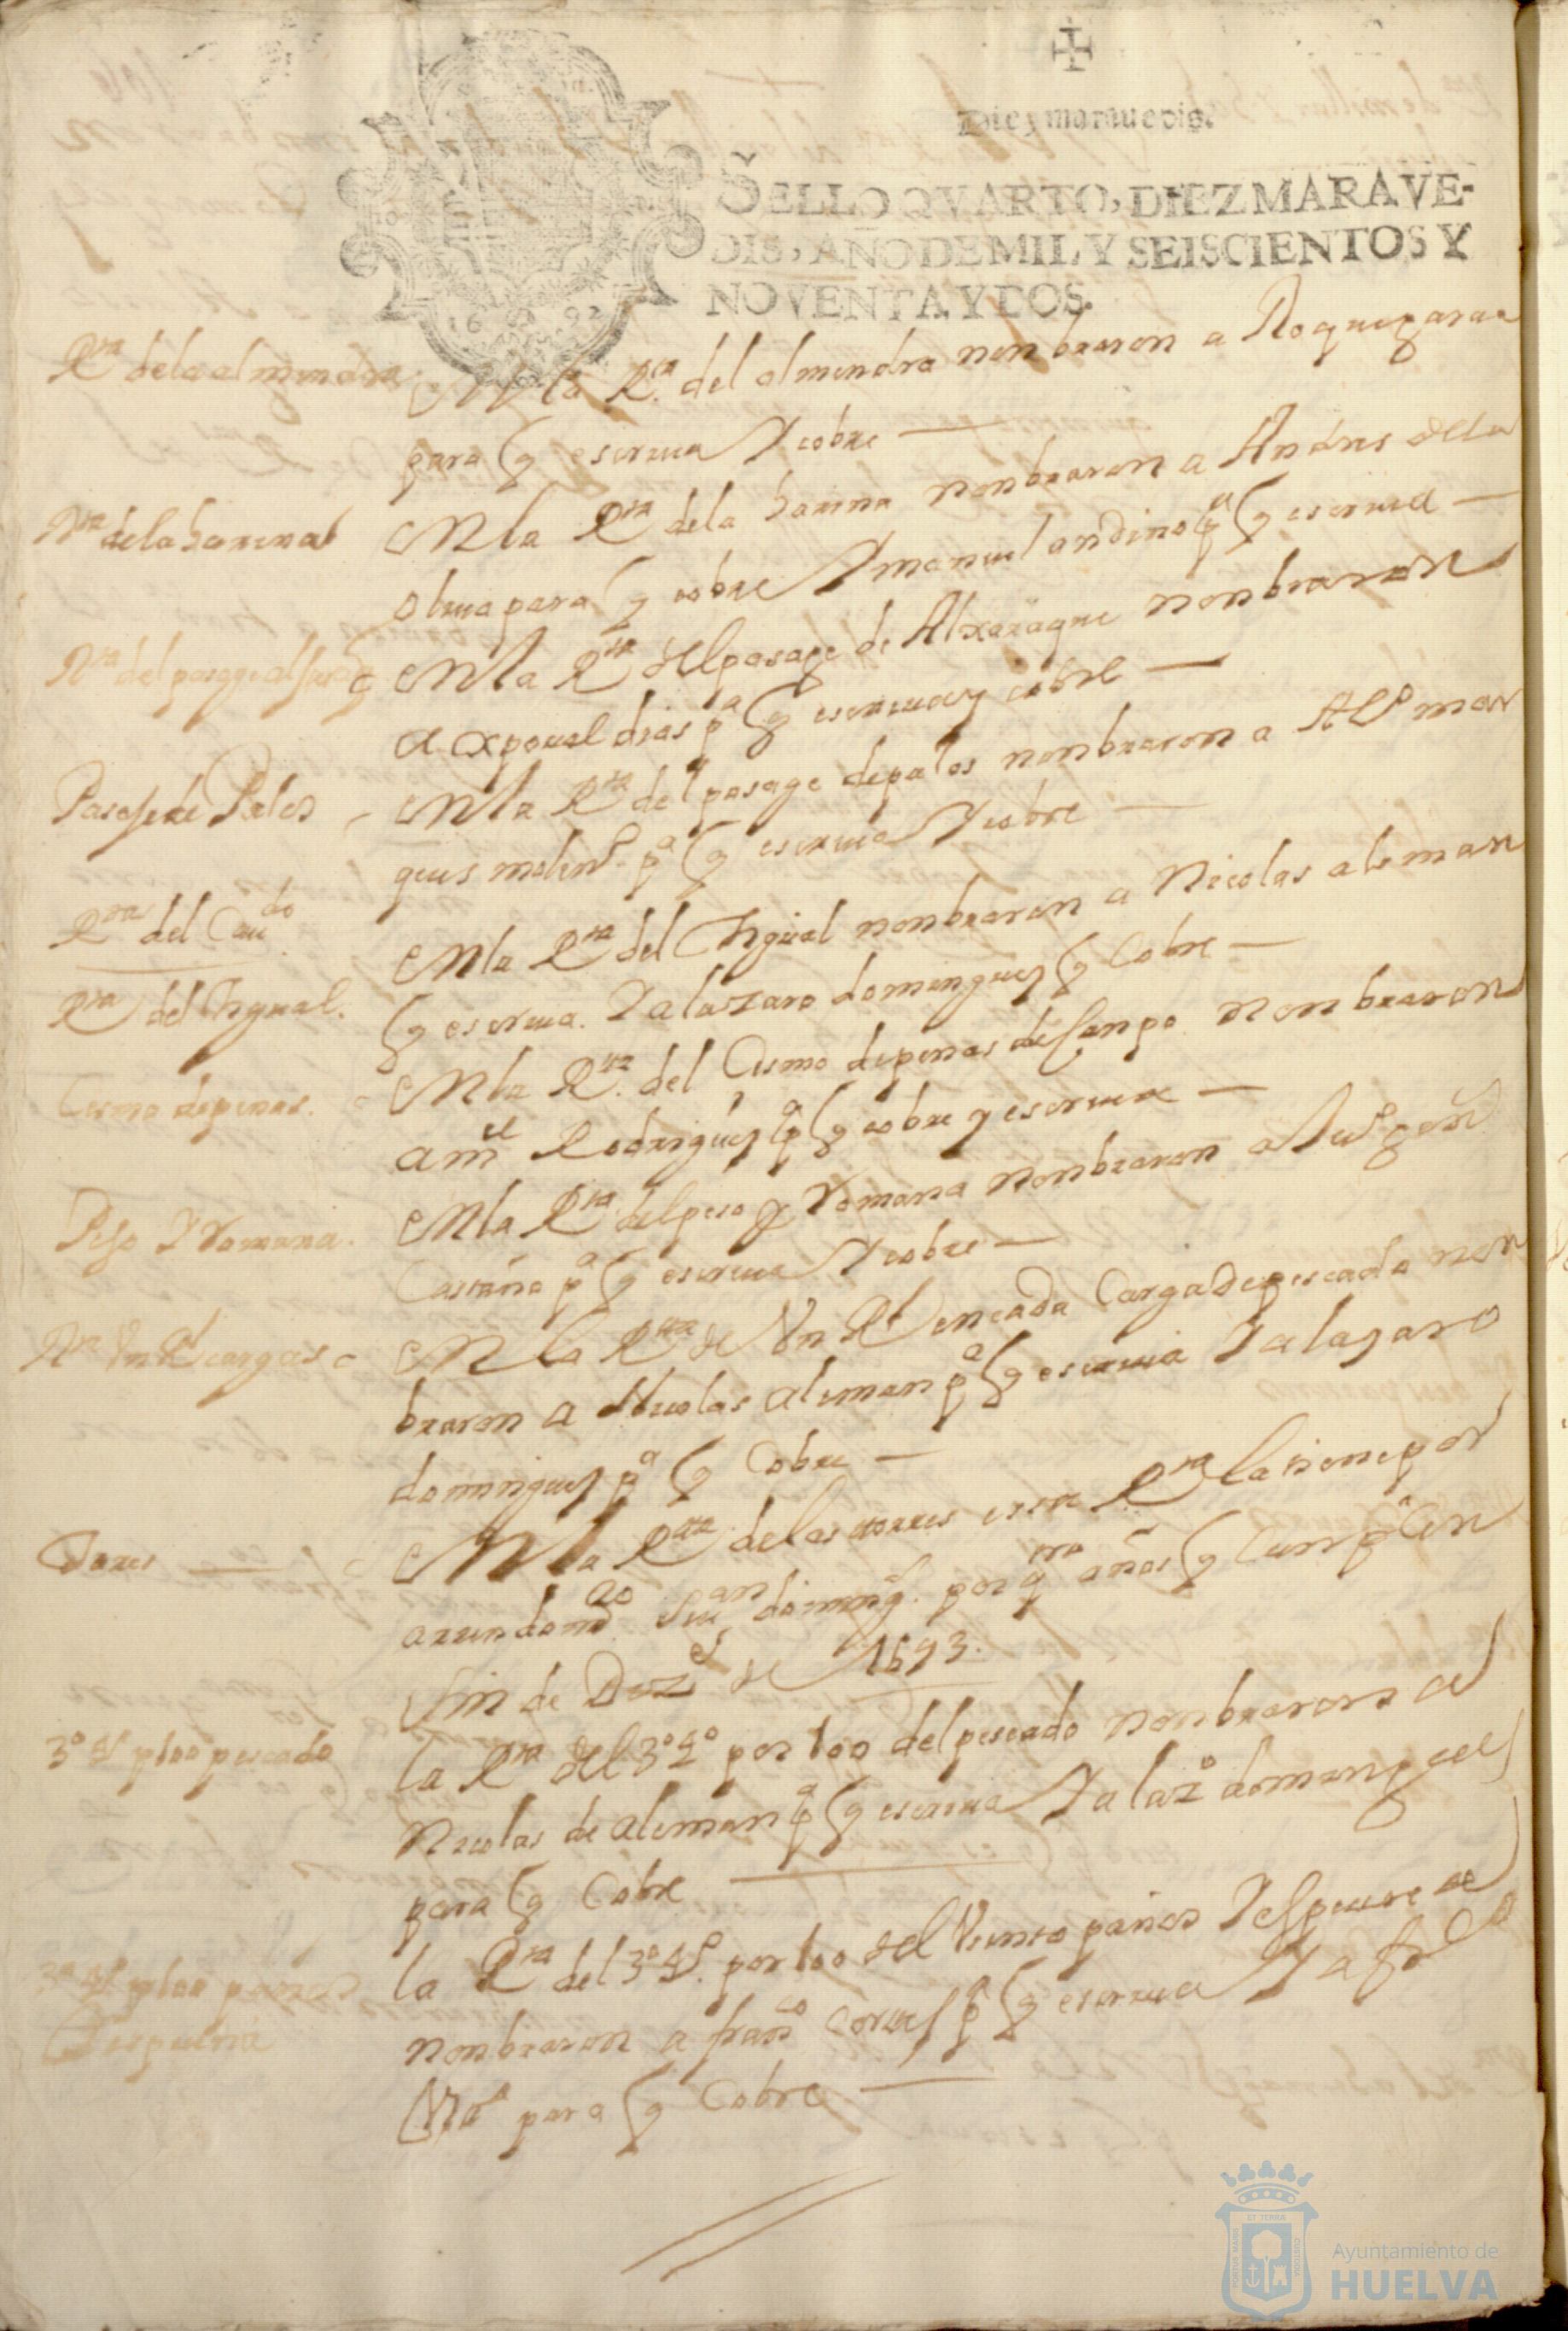 Diez maravedis.
SELLO QVARTO, DIEZ MARAVE-
DIS, AÑO DE MIL Y SEISCIENTOS Y
NOVENTA Y DOS.
1692
Rta de la almendra
En la Rta del almendra nonbraron a Roque
para q escriua Y cobre
Rta de la harina
En la Rta de la harina nonbraron a Andres de la
oliua para q cobre Y manuel andino pa q escriua
Rta del pasage
En la Rta del pasage de Alxaraque nonbraron
a xpoual dias pa q escriua y cobre
Pasaje de Palos
En la Rta del pasage de palos nonbraron a Alo mar
ques molino pa q escriua Y cobre
Rta del Caudo
En la Rta del Higual nonbraron a Nicolas aleman
Rta del Higual.
q escriua. Y a lazaro dominguez q Cobre
Cismo de penas.
En la Rta del Cismo de penas de Canpo nonbraron
a ml Rodriguez pa q cobre y escriua
Peso Y Romana.
En la Rta del peso y Romana nonbraron a
Castaño pa q escriua Y cobre
Rta Un Rl cargas
En la Rta de Un Rl en cada Carga de pescado non
braron a Nicolas aleman pa q escriua Y a lazaro
dominguez pa q Cobre
Torres
En la Rta de las torres esta Rta la tiene por
arrendamo Juan doming. por qtro años q Cunplen
fin de Dize de 1693.
3o 4o p 100 pescado
la Rta del 3o 4o por 100 del pescado nonbraron a
Nicolas de aleman pa q escriua Y a lazo dominguez
para q Cobre
3o 4o p 100 paños
la Rta del 3o 4o por 100 del Viento paños Y especeria
nonbraron a franco Cortes pa q escriua Y a
para q Cobre
Ayuntamiento de
HUELVA